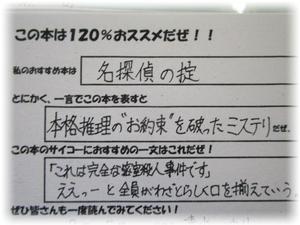 この本は120%おススメだぜ!!
私のおすすめ本は 名探偵の掟
とにかく、一言でこの本を表すと
本格推理の"お約束"を破ったミステリだぜ.
この本のサイコーにおすすめの一文はこれだぜ!
「これは完全な密室殺人事件です」
ええっーと全員がわざとらしく口を揃えていう。
ぜひ皆さんも一度読んでみてください!